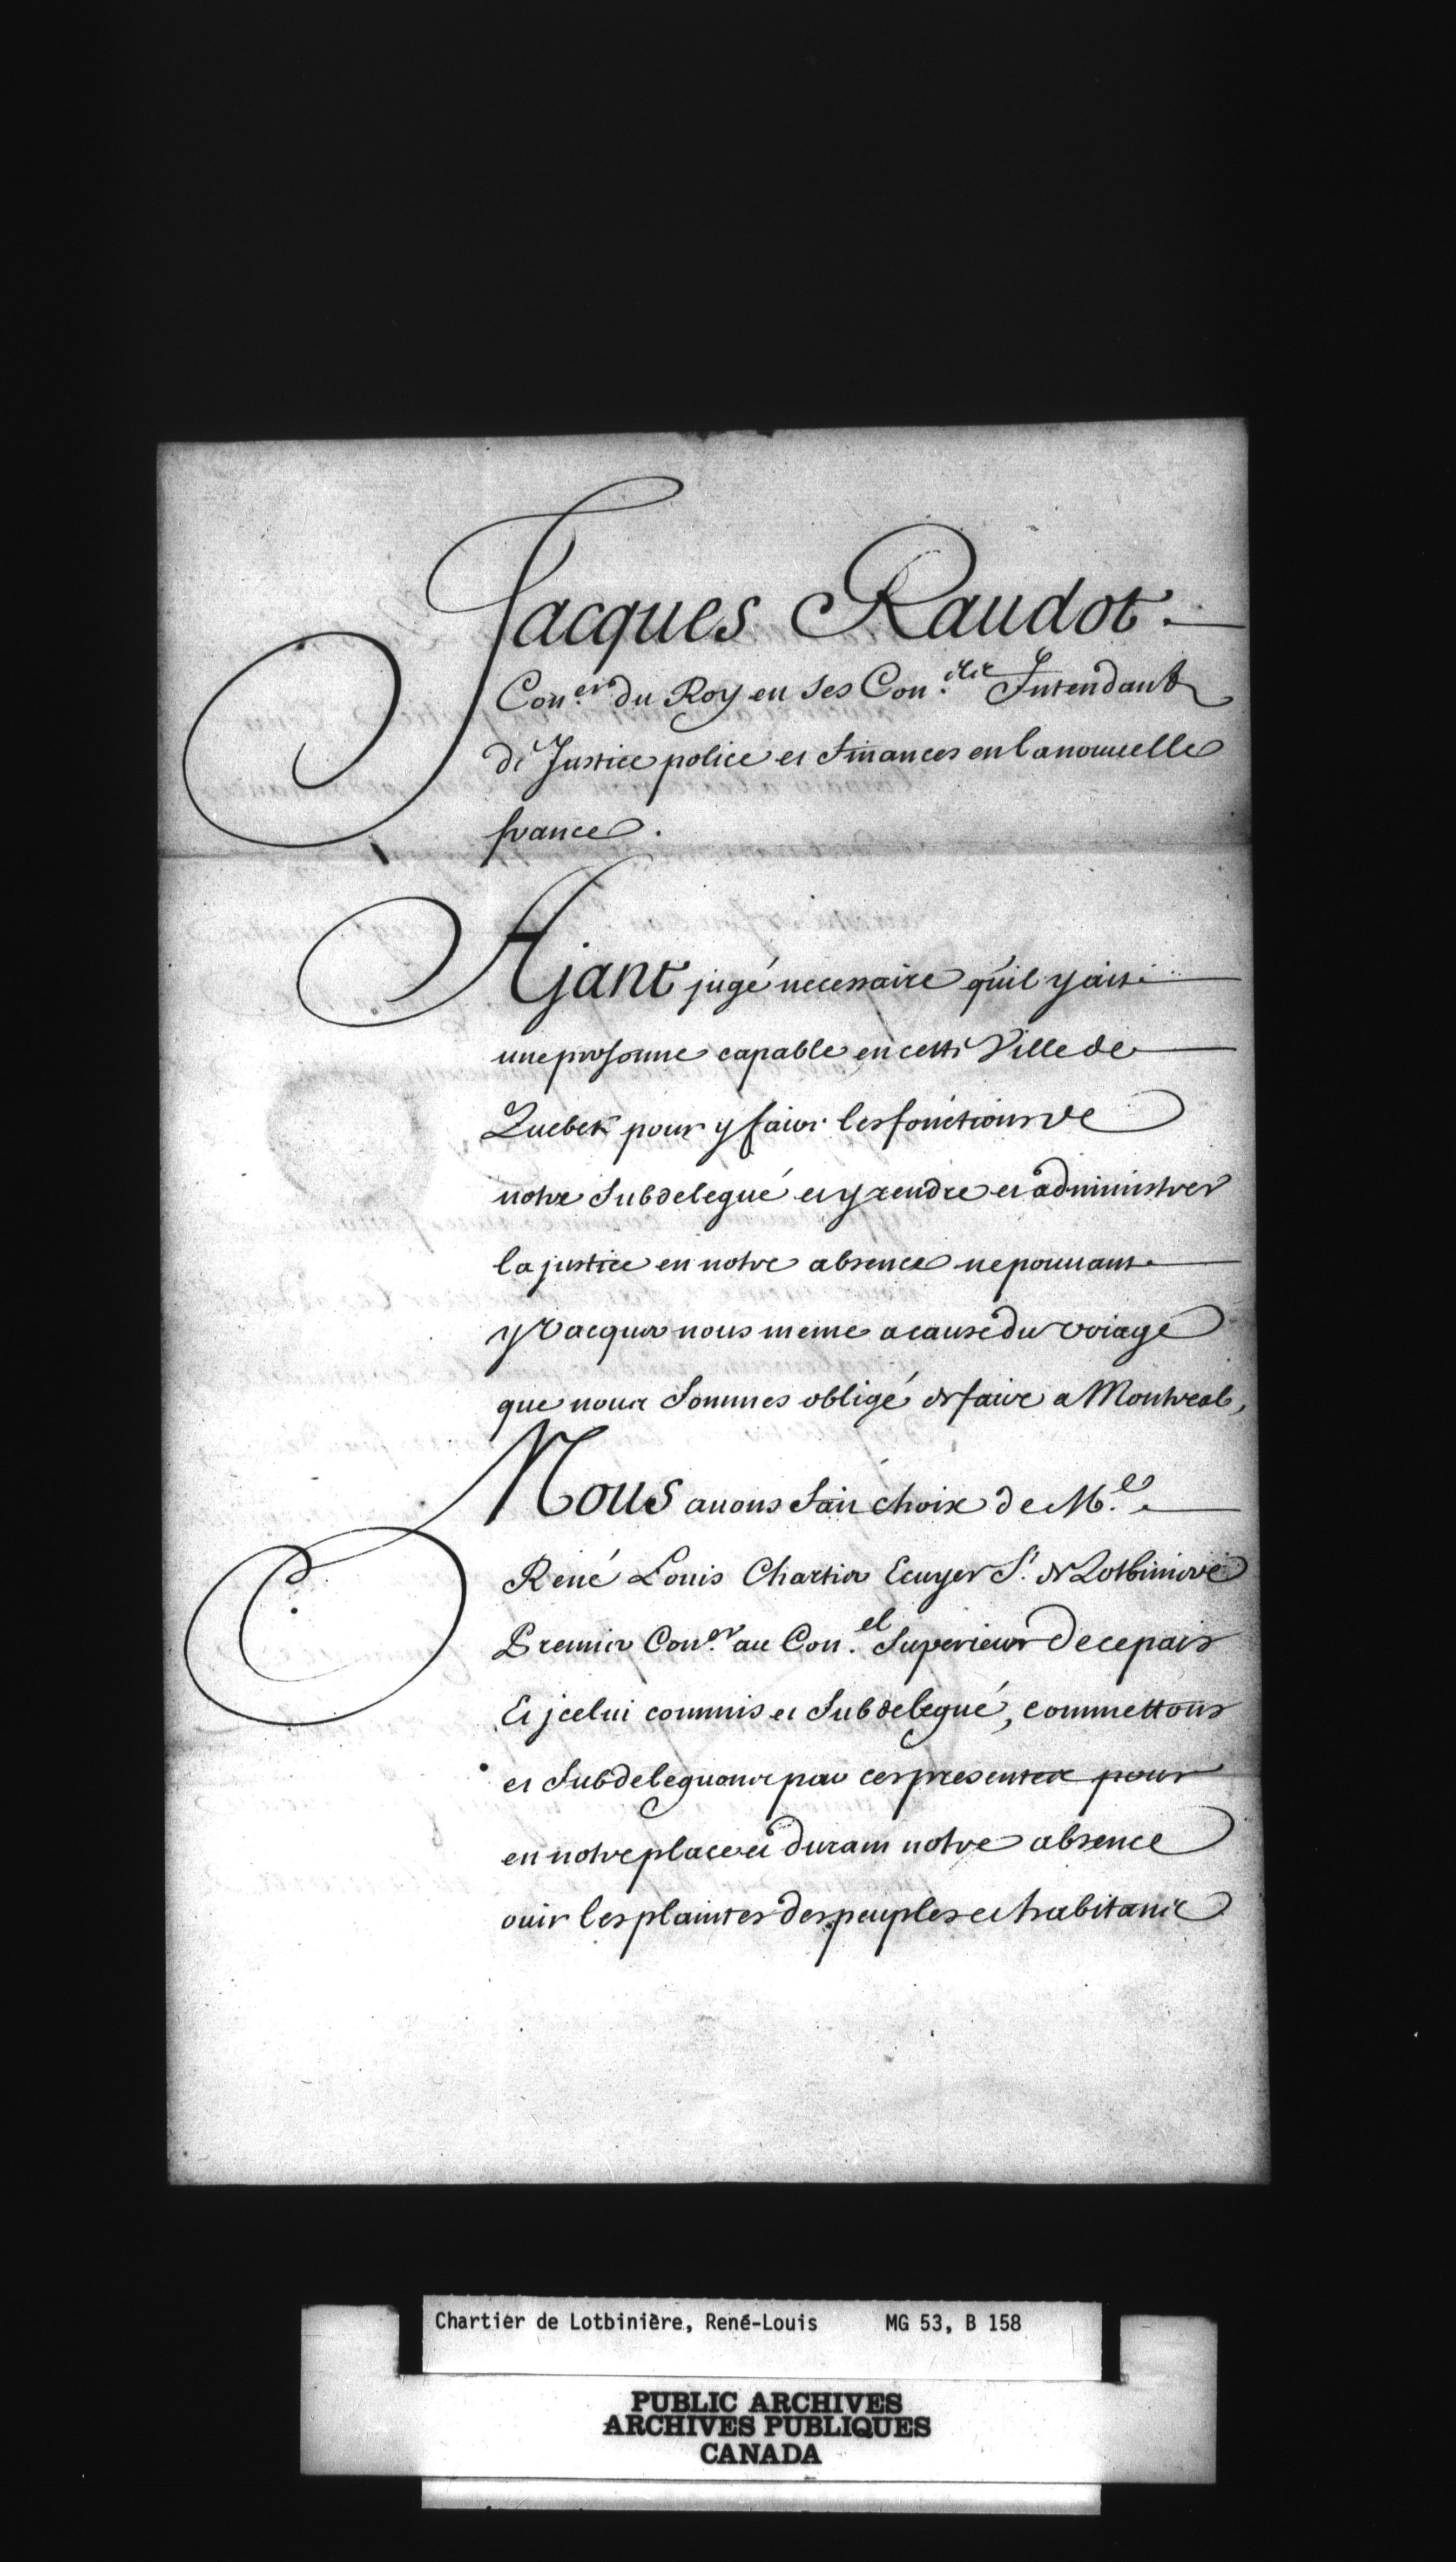 Jacques Raudot.
Con.er du Roy en ses Con.els Intendant
de Justice police et finances en la nouuelle
france.
Ajant jugé necessaire qu'il y ait
une personne capable en cette Ville de
Quebek pour y faire les fonctions de
notre Subdelegué et y rendre et administrer
la justice en notre absence ne pouuant
y Vacquer nous meme a cause du voiage
que nous Sommes obligé de faire a Montreal,
Nous auons fait choix de M.e
René Louis Chartier Ecuyer S.r de Lotbiniere
Premier Con.er au Con.el Superieur de ce pais
Et jcelui commis et Subdelegué, commettons
et Subdeleguons par ces presentes pour
en notre place et durant notre absence
ouir les plaintes des peuples et habitans
Chartier de Lotbinière, René-Louis MG 53, B 158
PUBLIC ARCHIVES
ARCHIVES PUBLIQUES
CANADA